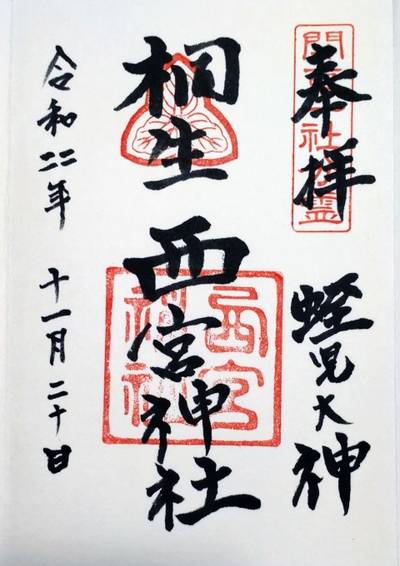 奉拝
蛭児大神
桐生
西宮神社
令和二年
十一月二十日
西宮
神社